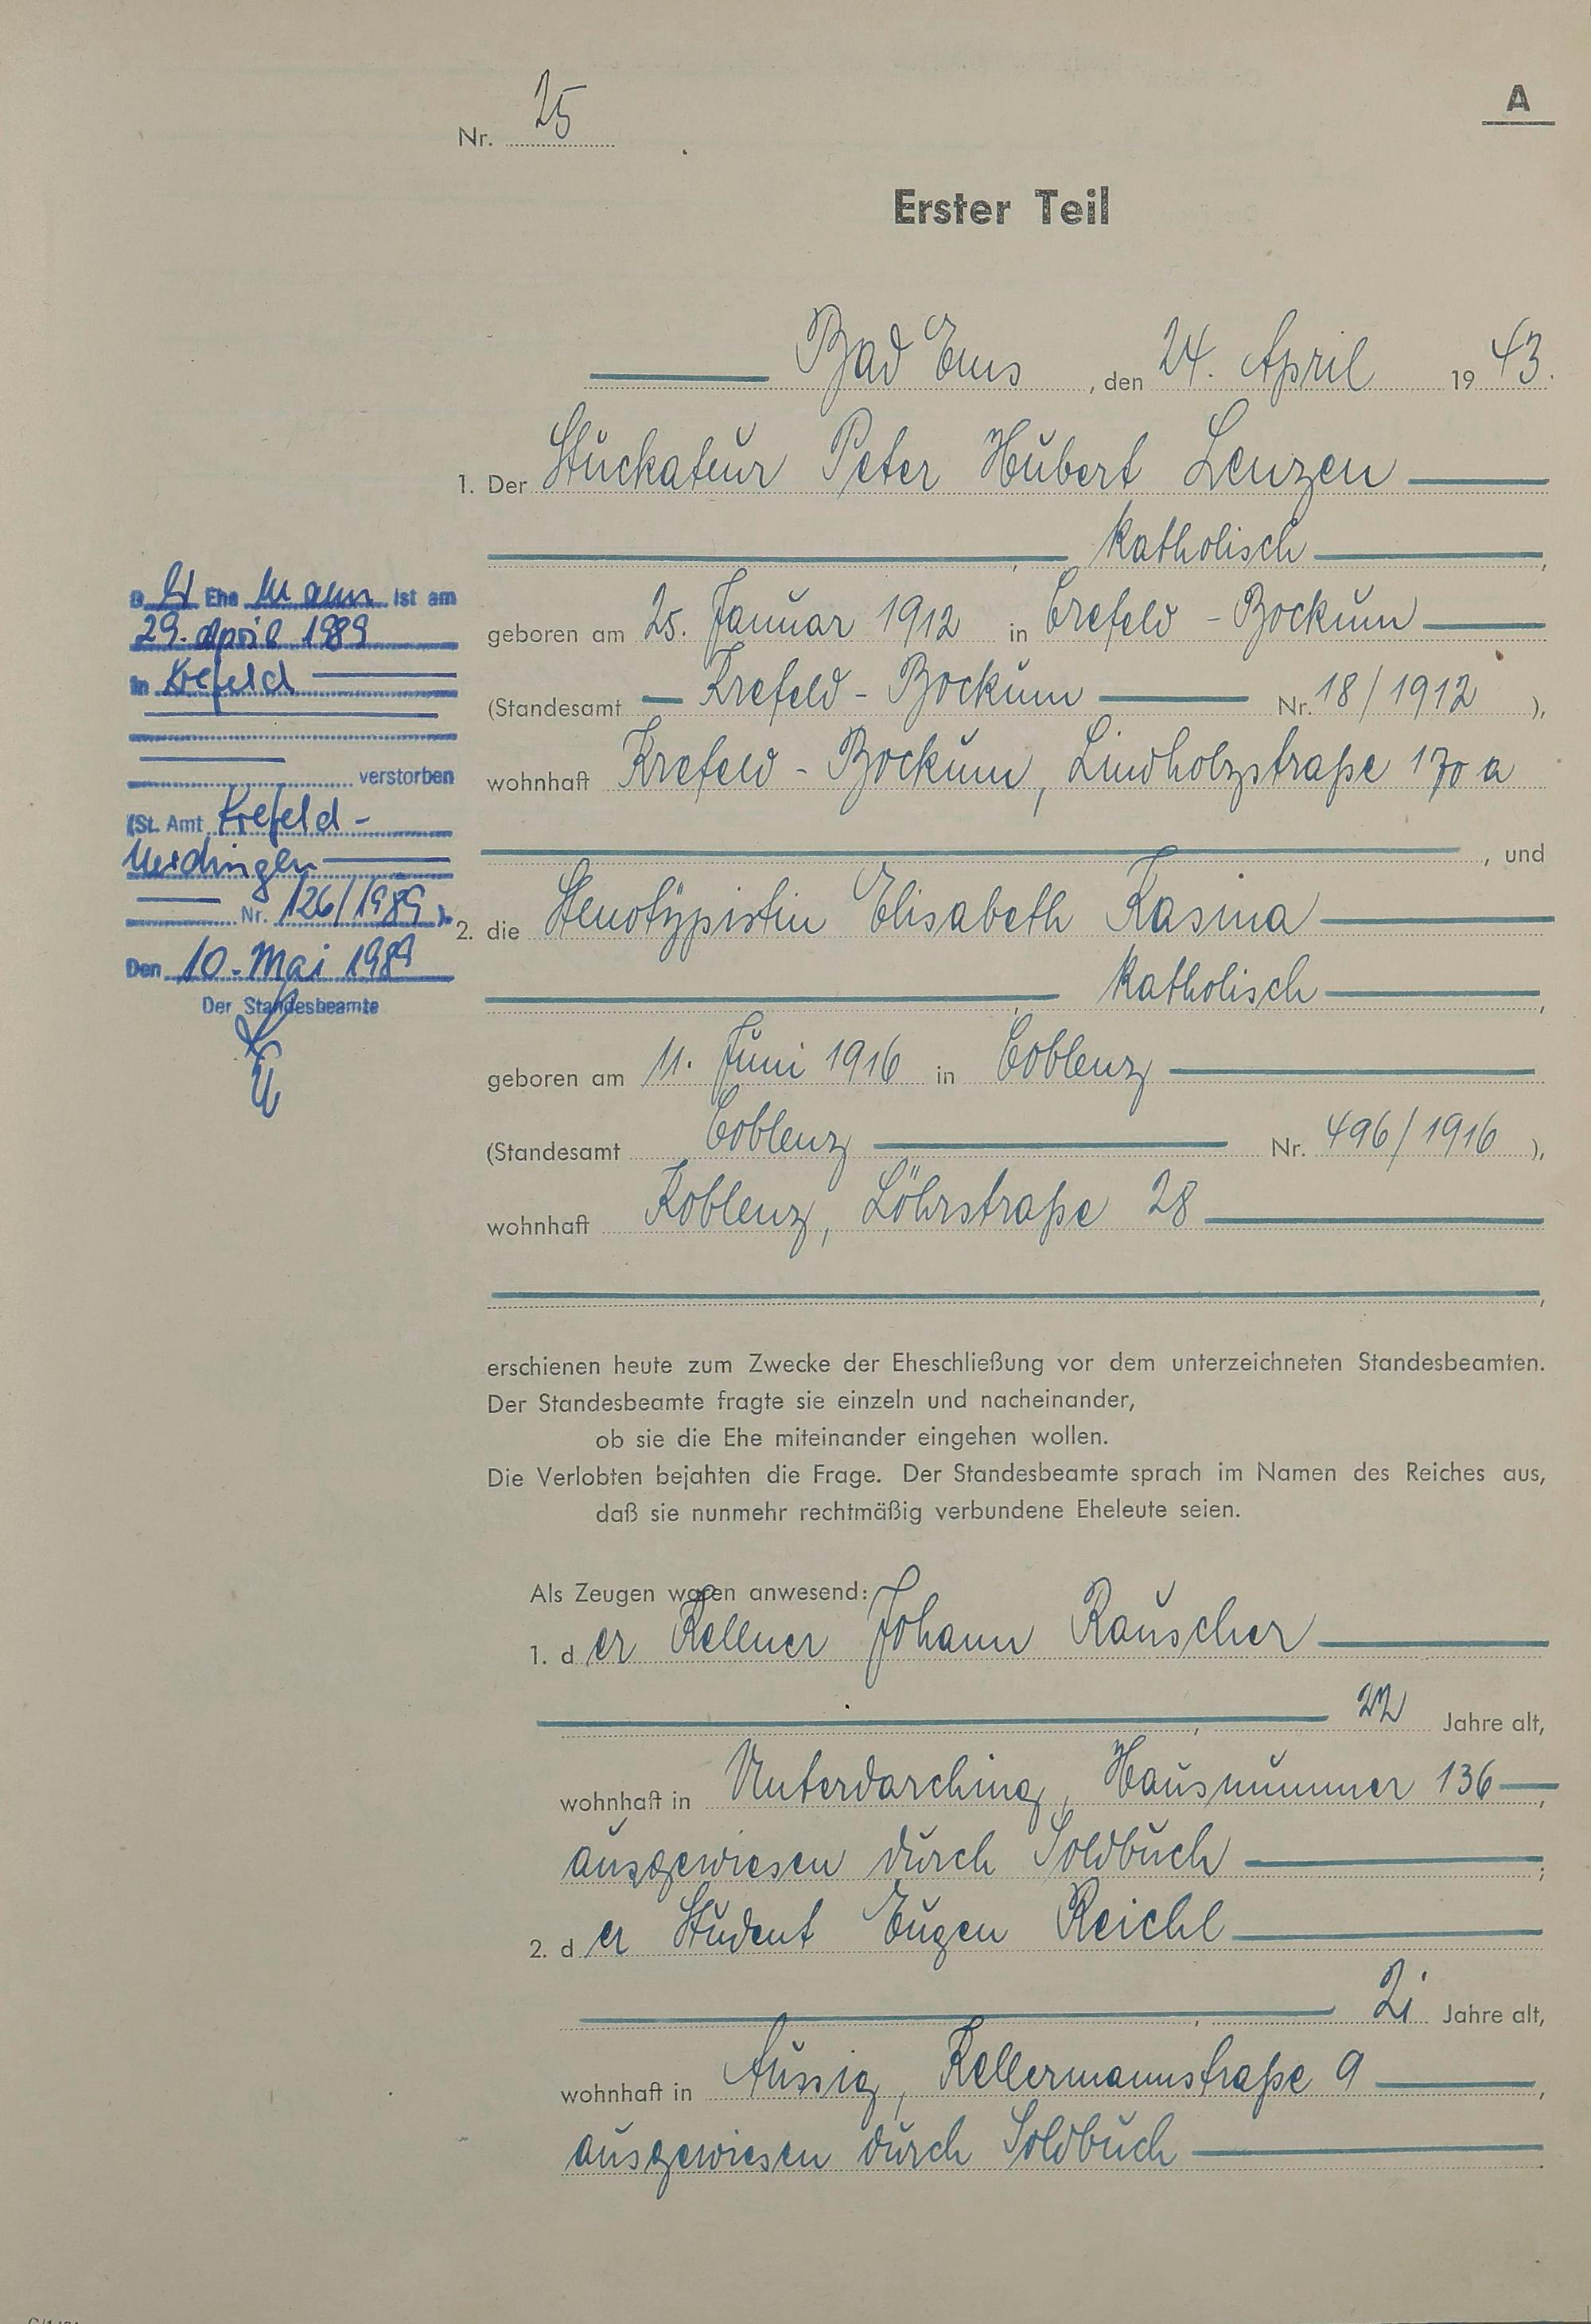 Nr. 25
A
Erster Teil
Bad Ems, den 24. April 1943.
1. Der Stuckateur Peter Hubert Lenzen
, katholisch,
geboren am 25. Januar 1912 in Crefeld - Bockum
(Standesamt Krefeld - Bockum Nr. 18/1912),
wohnhaft Krefeld - Bockum, Lindholzstraße 170 a
, und
2. die Stenotypistin Elisabeth Kasina
, katholisch,
geboren am 11. Juni 1916 in Coblenz
(Standesamt Coblenz Nr. 496/1916),
wohnhaft Koblenz, Löhrstraße 28
,
erschienen heute zum Zwecke der Eheschließung vor dem unterzeichneten Standesbeamten.
Der Standesbeamte fragte sie einzeln und nacheinander,
ob sie die Ehe miteinander eingehen wollen.
Die Verlobten bejahten die Frage. Der Standesbeamte sprach im Namen des Reiches aus,
daß sie nunmehr rechtmäßig verbundene Eheleute seien.
Als Zeugen waren anwesend:
1. der Kellner Johann Rauscher
, 22 Jahre alt,
wohnhaft in Unterdarching, Hausnummer 136,
ausgewiesen durch Soldbuch;
2. der Student Eugen Reichl
, 21 Jahre alt,
wohnhaft in Aussig, Kellermannstraße 9,
ausgewiesen durch Soldbuch.
Der Ehemann ist am
29. April 1989
in Krefeld
verstorben
(St. Amt Krefeld-
Uerdingen
Nr. 126/1989).
Den 10. Mai 1989
Der Standesbeamte